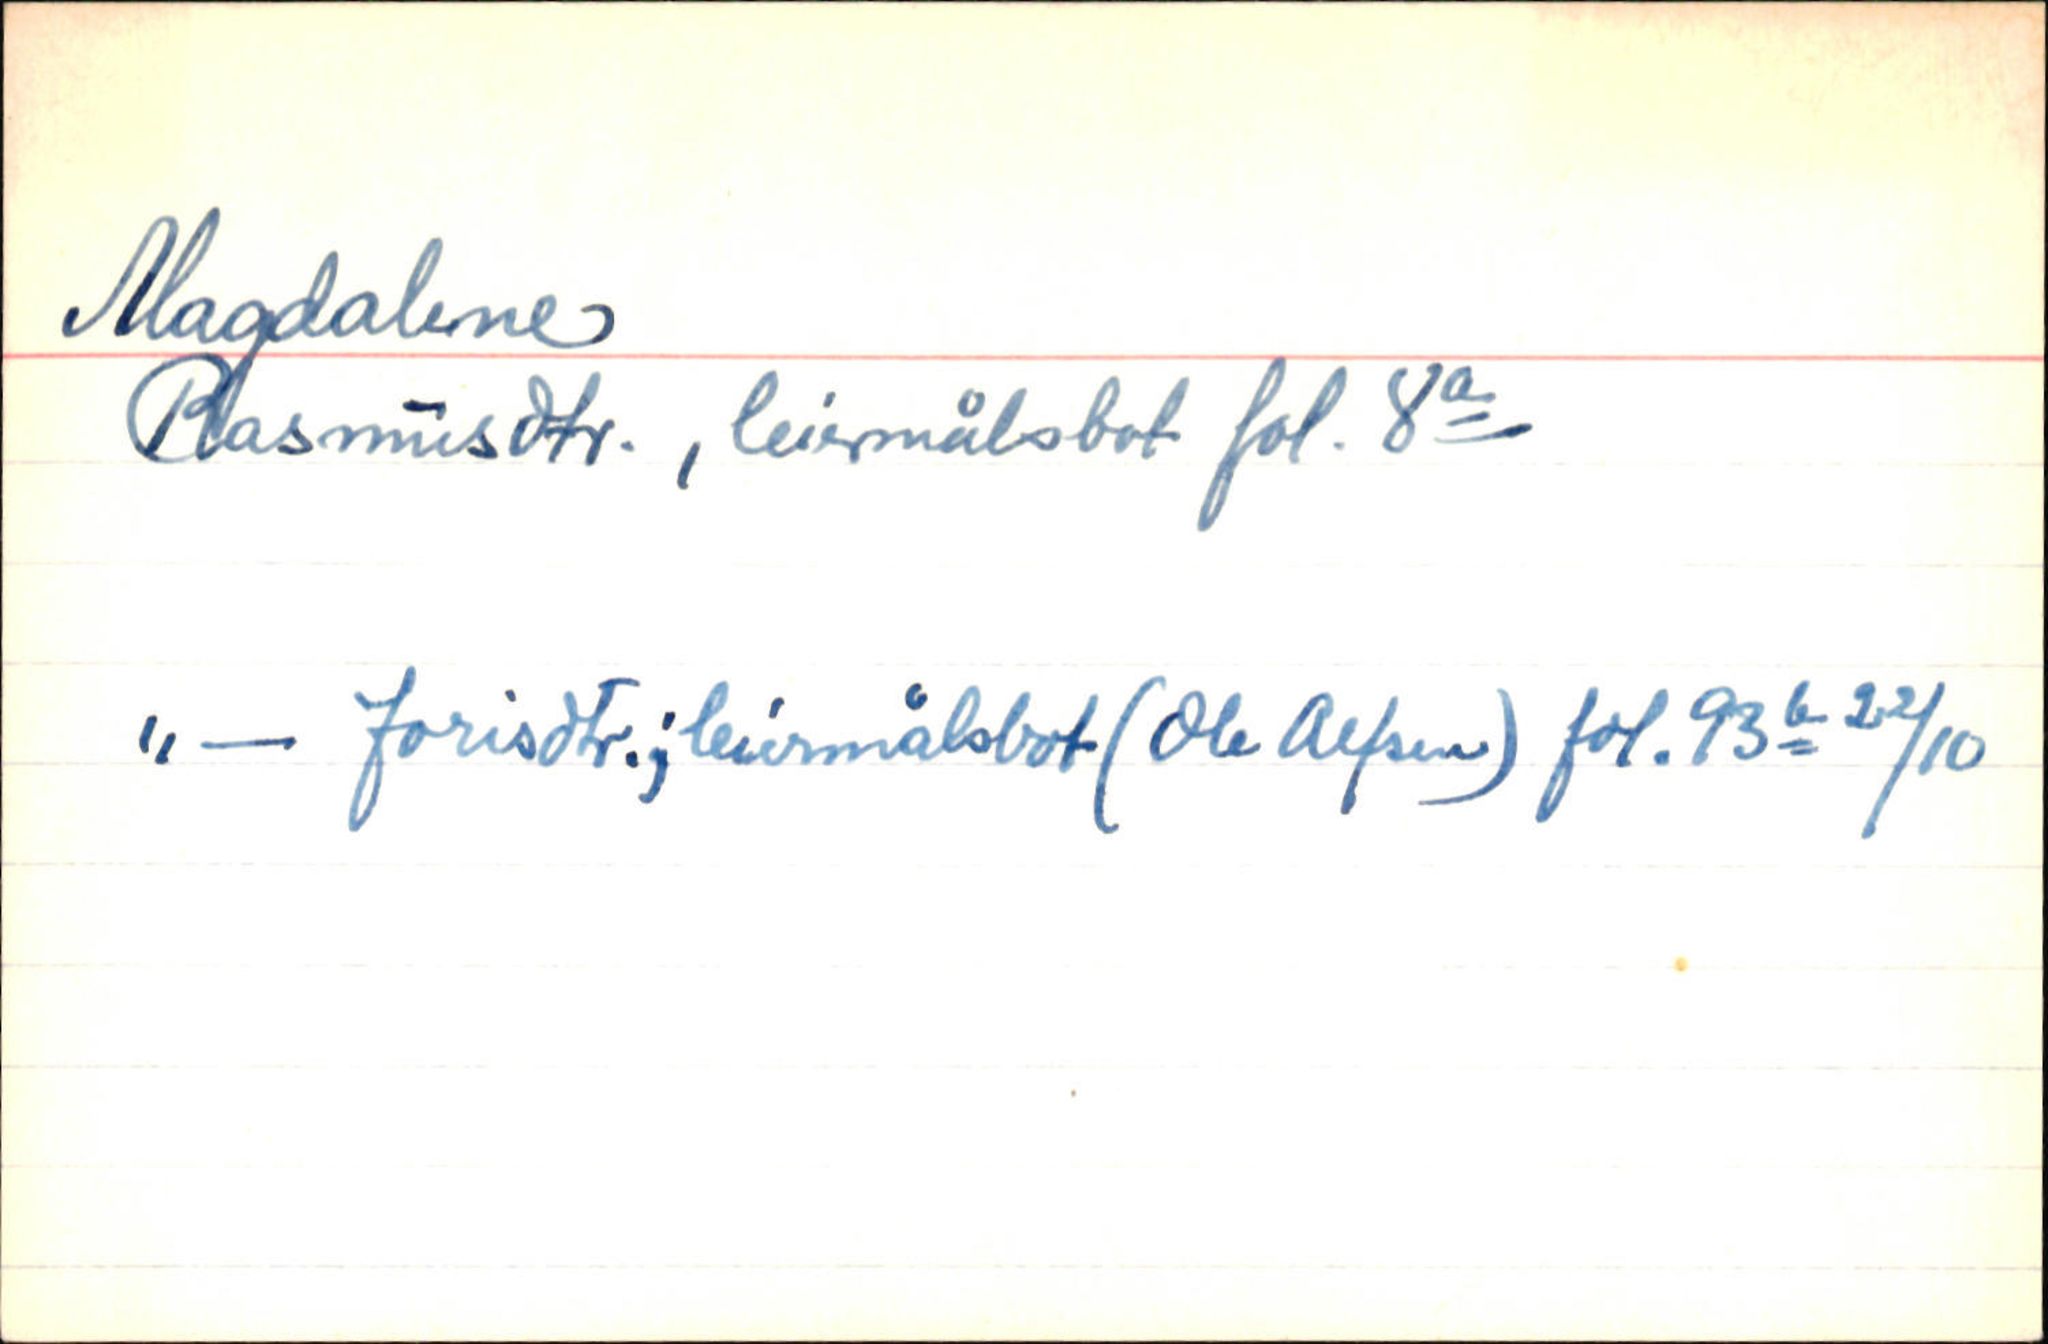 Magdalene
Rasmusdtr., leiermålsbot fol. 8a
"— Jorisdtr.; leiermålsbot (Ole Alfsen) fol. 93b 22/10